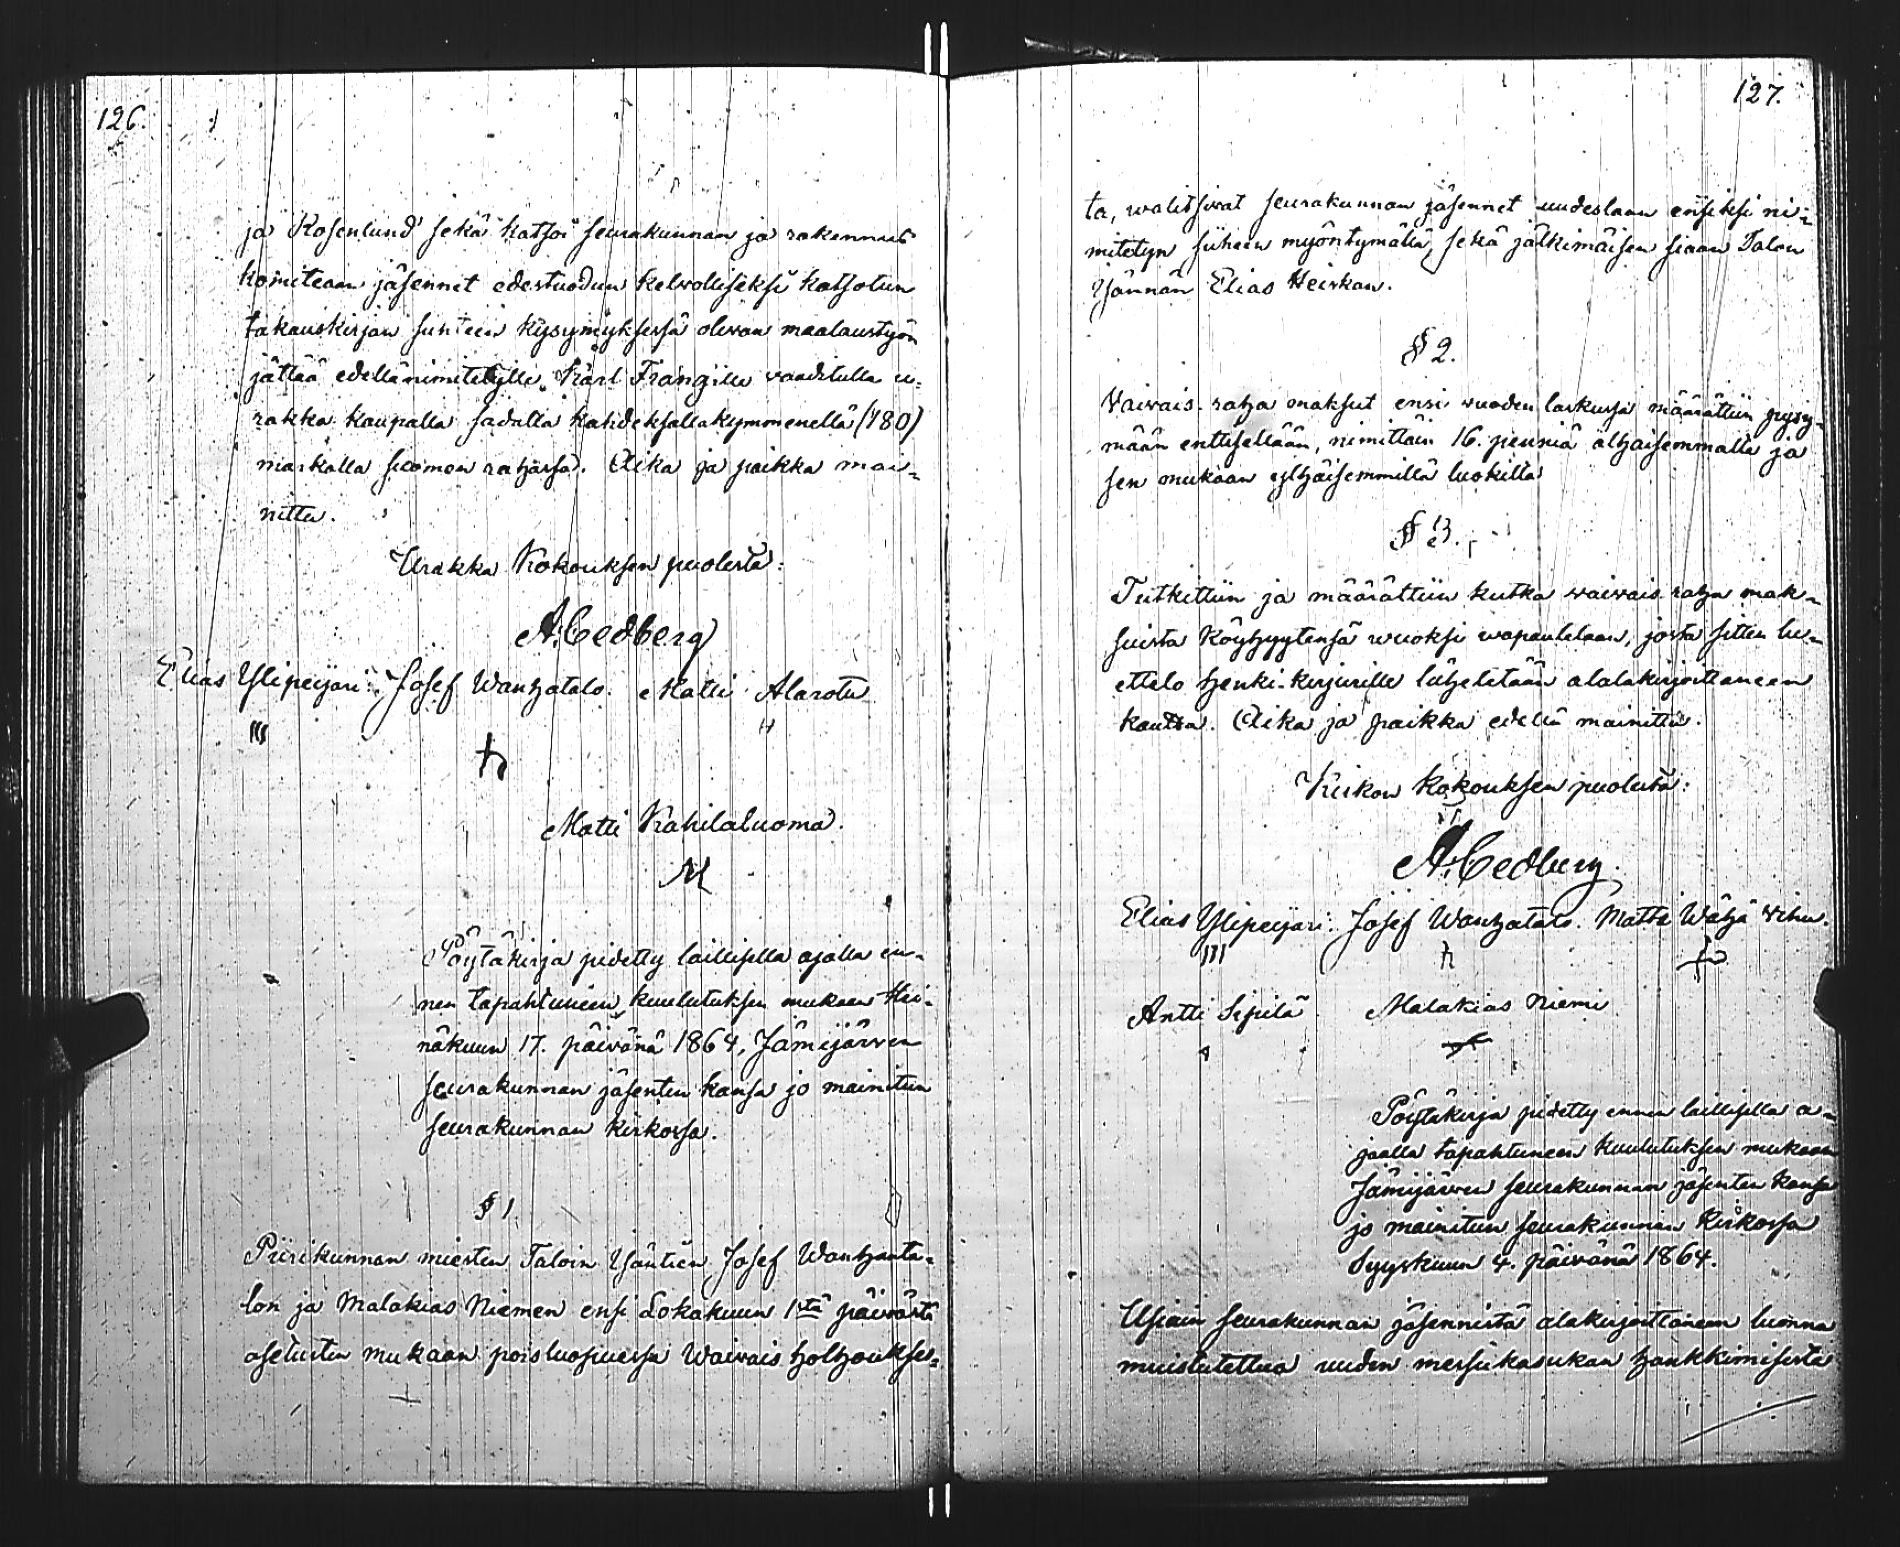 126.
ja Rosenlund sekä katsoi seurakunnan ja rakennus
komitean jäsennet edestuodun kelwolliseksi katsotun
takauskirjan suhteen kysymyksessä olewan maalaustyön
jättää edellänimitetylle Karl Frangille vaaditulla u-
rakka kaupalla sadalla kahdeksallakymmenellä (180)
markalla suomen rahassa. Aika ja paikka mai-
nittu.
Urakka Kokouksen puolesta:
A. Cedberg
Elias Ylipeijari. Josef Wanhatalo. Matti Alarotu
Matti Kahilaluoma.
Pöytäkirja pidetty laillisella ajalla en-
nen tapahtuneen kuulutuksen mukaan Hei-
näkuun 17. päivänä 1864, Jämijärwen
seurakunnan jäsenten kansa jo mainitun
seurakunnan kirkossa.
§ 1.
Piirikunnan miesten Taloin Isäntien Josef Wanhanta-
lon ja Malakias Niemen ensi Lokakuun 1stä päivästä
asetusten mukaan poisluopuessa Waiwais holhoukses-
127.
ta, walitsiwat seurakunnan jäsennet uudestaan ensiksi ni-
mitetyn siihen myöntymällä, sekä jälkimäisen siaan Talon
Isännän Elias Heiskan.
§ 2.
Waiwais-raha maksut ensi wuoden laskussa määrättiin pysy-
mään enttisellään, nimittäin 16. penniä alhaisemmalla ja
sen mukaan ylhäisemmillä luokilla
§ 3.
Tutkittiin ja määrättiin kutka waiwais raha mak-
suista köyhyytensä wuoksi wapautetaan, josta sitten lu-
ettelo henki-kirjurille lähetetään alalakirjoittaneen
kautta. Aika ja paikka edellä mainittu.
Kirkon Kokouksen puolesta:
A. Cedberg.
Elias Ylipeijari. Josef Wanhatalo. Matti Wähä Wihu.
Antti Sipilä Malakias Niemi
Pöytäkirja pidetty ennen laillisella a-
jaalla tapahtuneen kuulutuksen mukaan
Jämijärwen seurakunnan jäsenten kansa
jo mainitun seurakunnan kirkossa
Syyskuun 4. päivänä 1864.
Usiain seurakunnan jäsennistä alakirjoittaneen luonna
muistutettua uuden messukasukan hankkimisesta